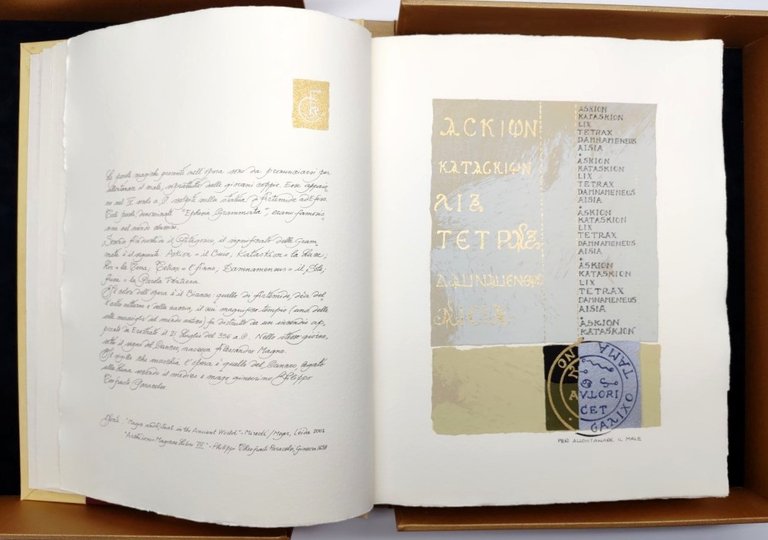 parole magiche presenti nell'opera sono da pronunciarsi per
allontanare il male, soprattutto dalle giovani coppie. Esse
nel IV secolo a.C. scolpite sulla statua di Artemide ad Efeso.
Tali parole, denominate "Ephesia Grammata", erano famosis-
sime nel mondo antico.
il Pitagorico, il significato delle Gram-
mata è il seguente: Askion = il Buio, Kataskion = la Luce,
Lix = la Terra, Tetrax = l'anno, Damnameneus = il Sole,
Aisia = la Parola Veritiera.
Il colore dell'opera è il Bianco: quello di Artemide, dea del
e della caccia, il cui magnifico tempio (una delle
sette meraviglie del mondo antico) fu distrutto da un incendio ap-
piccato da Erostrato il 21 Luglio del 356 a.C. Nello stesso giorno,
sotto il segno del Cancro, nasceva Alessandro Magno.
Il sigillo che marchia l'opera è quello del Cancro, legato
alla Luna, secondo il medico e mago Philippo
Teofrasto Paracelso.
Fonti: "Magic and Ritual in the Ancient World" - Mirecki / Meyer, Leida 2002
"Archidoxis Magicae Libri VII" - Philippi Paracelsi, Geneva 1658
ΑCΚΙΩΝ
ΚΑΤΑCΚΙΩΝ
ΛΙΞ
ΤΕΤΡΑΞ
ASKION
KATASKION
LIX
TETRAX
DAMNAMENEUS
AISIA
•
ASKION
KATASKION
LIX
TETRAX
DAMNAMENEUS
AISIA
•
ASKION
KATASKION
LIX
TETRAX
DAMNAMENEUS
AISIA
•
ASKION
KATASKION
LIX
TETRAX
DAMNAMENEUS
AISIA
•
ASKION
KATASKION
AVLORI
CET
PER ALLONTANARE IL MALE